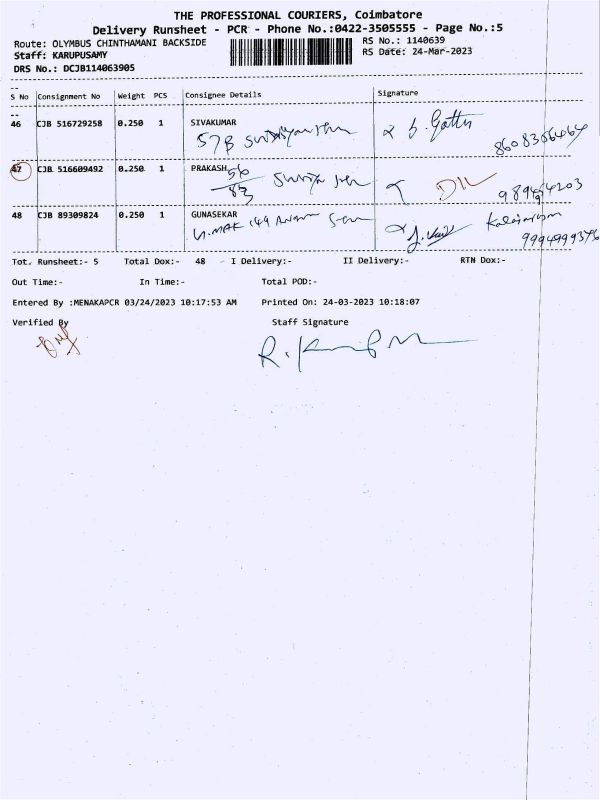 THE PROFESSIONAL COURIERS, Coimbatore
Delivery Runsheet - PCR - Phone No.:0422-3505555 - Page No.:5
Route: OLYMBUS CHINTHAMANI BACKSIDE RS No.: 1140639
Staff: KARUPUSAMY RS Date: 24-Mar-2023
DRS No.: DCJB114063905
S No Consignment No Weight PCS Consignee Details Signature
46 CJB 516729258 0.250 1 SIVAKUMAR
57B
8608356464
47 CJB 516609492 0.250 1 PRAKASH
56
83
48 CJB 89309824 0.250 1 GUNASEKAR
144
Tot. Runsheet:- 5 Total Dox:- 48 I Delivery:- II Delivery:- RTN Dox:-
Out Time:- In Time:- Total POD:-
Entered By :MENAKAPCR 03/24/2023 10:17:53 AM Printed On: 24-03-2023 10:18:07
Verified By Staff Signature